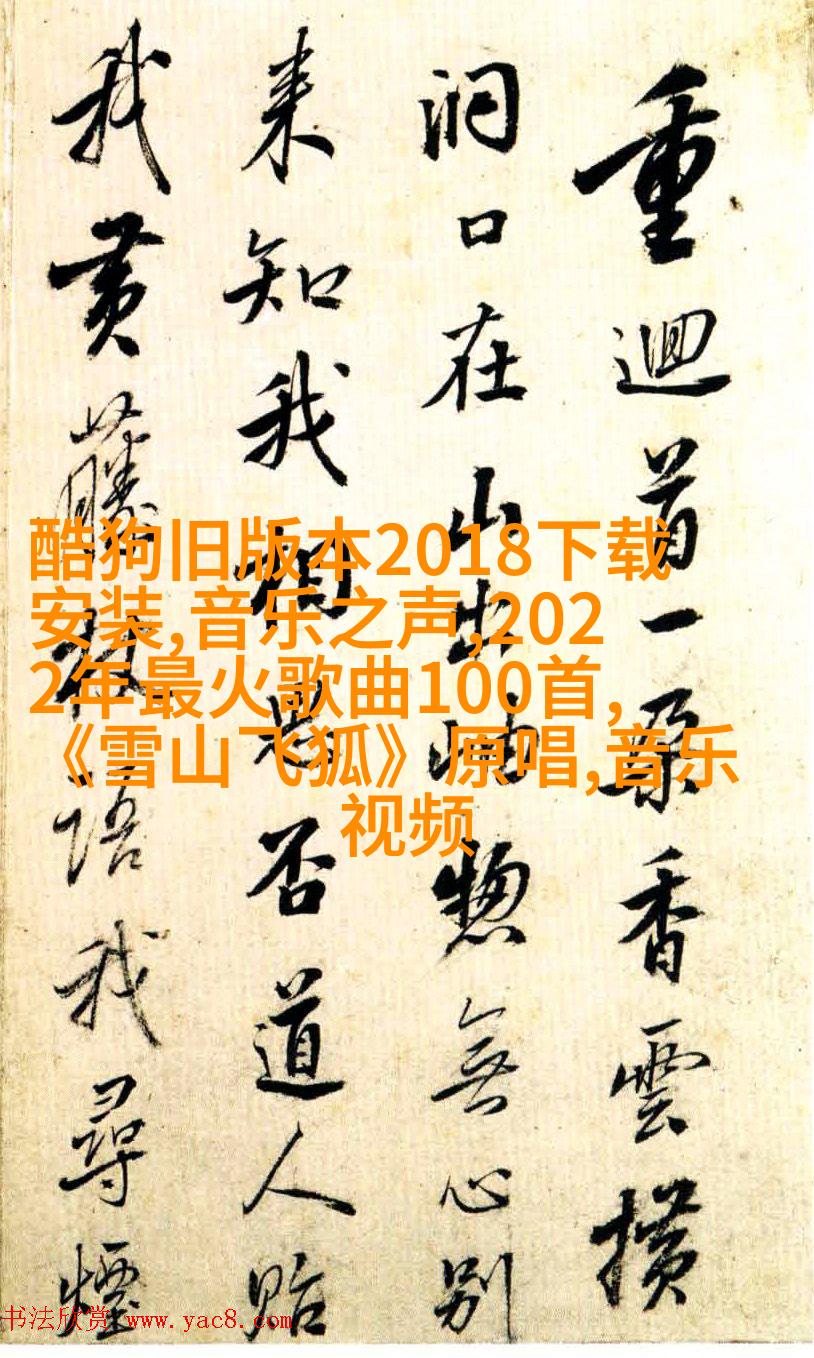 重迴首一朵香雲横
洞口在山出岫惣無心别
来知我相思否道人貽
我黄藤杖語我尋煙
酷狗旧版本2018下载
安装,音乐之声,202
2年最火歌曲100首,
《雪山飞狐》原唱,音乐
视频
书法欣赏 www.yac8.com